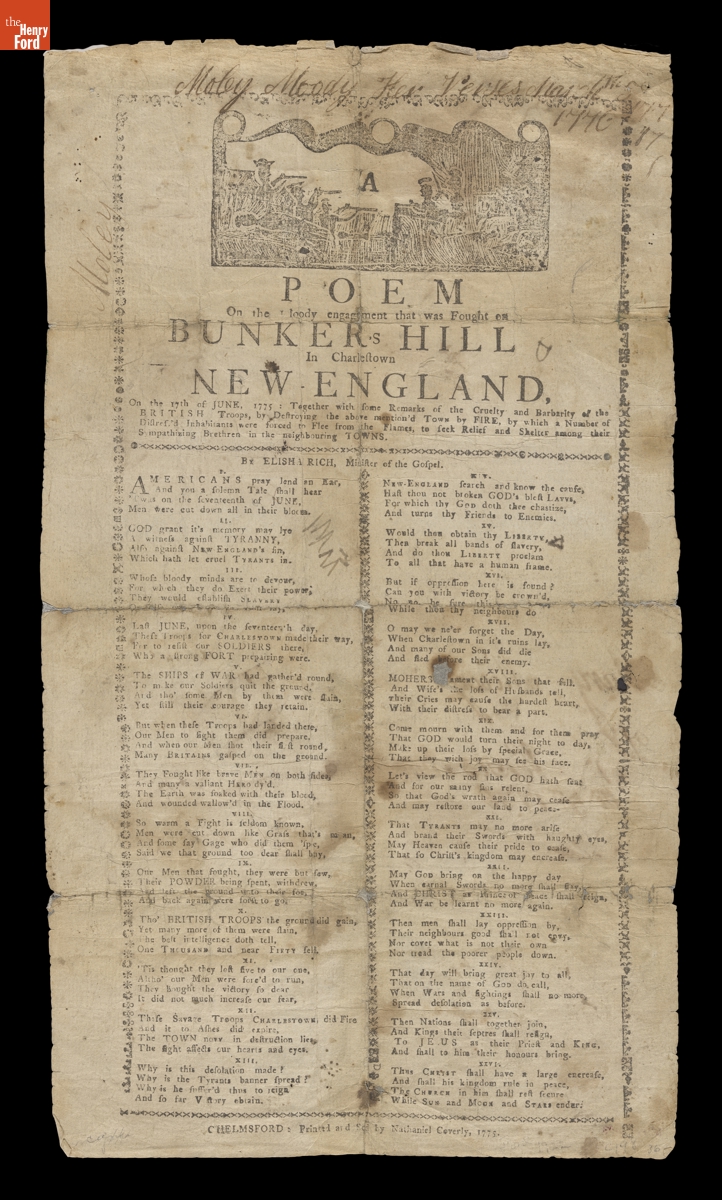 the
Henry
Ford
Moley Moody Her Verses
1776
Moley
A
POEM
On the loody engagement that was Fought on
BUNKER,s HILL
In Charleſtown
NEW-ENGLAND,
On the 17th of JUNE, 1775: Together with ſome Remarks of the Cruelty and Barbarity of the
BRITISH Troops, by Deſtroying the above mention'd Town by FIRE, by which a Number of
Diſtreſ'd Inhabitants were forced to Flee from the Flames, to ſeek Relief and Shelter among their
Simpathiſing Brethren in the neighbouring TOWNS.
By ELISHA RICH, Miniſter of the Goſpel.
I.
AMERICANS pray lend an Ear,
And you a ſolemn Tale ſhall hear
'Twas on the ſeventeenth of JUNE,
Men were cut down all in their bloom.
II.
GOD grant it's memory may lye
A witneſs againſt TYRANNY,
Alſo againſt NEW ENGLAND's ſin,
Which hath let cruel TYRANTS in.
III.
Whoſe bloody minds are to devour,
For which they do Exert their power,
They would eſtabliſh SLAVERY
IV.
Laſt JUNE, upon the ſeventeenth day,
Theſe Troops for CHARLESTOWN made their way,
For to reſiſt our SOLDIERS there,
Who a ſtrong FORT preparing were.
V.
The SHIPS of WAR had gather'd round,
To make our Soldiers quit the ground,
And tho' ſome Men by them were ſlain,
Yet ſtill their courage they retain.
VI.
But when theſe Troops had landed there,
Our Men to fight them did prepare,
And when our Men ſhot their firſt round,
Many BRITAINS gaſped on the ground.
VII.
They Fought like brave MEN on both ſides,
And many a valiant HERO dy'd.
The Earth was ſoaked with theſe blood,
And wounded wallow'd in the Flood.
VIII.
So warm a Fight is ſeldom known,
Men were cut down like Graſs that's mown,
And ſome ſay Gage who did them 'ſpie,
Said we that ground too dear ſhall buy.
IX.
Our Men that fought, they were but few,
Their POWDER being ſpent, withdrew,
And left the ground to their foe,
And back again were forc'd to go.
X.
Tho' BRITISH TROOPS the ground did gain,
Yet many more of them were ſlain,
The beſt intelligence doth tell,
One THOUSAND and near FIFTY fell.
XI.
'Tis thought they loſt five to our one,
Altho' our Men were forc'd to run,
They bought the victory ſo dear
It did not much increaſe our fear.
XII.
Theſe Savage Troops CHARLESTOWN did Fire
And it to Aſhes did expire,
The TOWN now in deſtruction lies,
The ſight affects our hearts and eyes.
XIII.
Why is this deſolation made?
Why is the Tyrants banner ſpread?
Why is he ſuffer'd thus to reign
And ſo far Victory obtain.
XIV.
NEW-ENGLAND ſearch and know the cauſe,
Haſt thou not broken GOD's bleſt LAWS,
For which thy GOD doth thee chaſtize,
And turns thy Friends to Enemies.
XV.
Would thou obtain thy LIBERTY,
Then break all bands of ſlavery,
And do thou LIBERTY proclaim
To all that have a human frame.
XVI.
But if oppreſſion here is found?
Can you with victory be crown'd,
No, no be ſure this
While thou thy neighbours do
XVII.
O may we ne'er forget the Day,
When Charleſtown in it's ruins lay,
And many of our Sons did die
And before their enemy.
XVIII.
MOHERS lament their Sons that fell,
And Wife's the loſs of Huſbands tell,
their Cries may cauſe the hardeſt heart,
With their diſtreſs to bear a part.
XIX.
Come mourn with them and for them pray
That GOD would turn their night to day,
Make up their loſs by ſpecial Grace,
That they with joy may ſee his face.
XX.
Let's view the rod that GOD hath ſent
And for our many ſins relent,
So that God's wrath again may ceaſe
And may reſtore our land to peace.
XXI.
That TYRANTS may no more ariſe
And brand their Swords with haughty eyes,
May Heaven cauſe their pride to ceaſe,
That ſo Chriſt's kingdom may encreaſe.
XXII.
May GOD bring on the happy day
When carnal Swords no more ſhall ſlay,
And CHRIST as Prince of Peace ſhall reign,
And War be learnt no more again.
XXIII.
Then men ſhall lay oppreſſion by,
Their neighbours good ſhall not envy,
Nor covet what is not their own
Nor tread the poorer people down.
XXIV.
That day will bring great joy to all,
That on the name of GOD do call,
When Wars and fightings ſhall no more,
Spread deſolation as before.
XXV.
Then Nations ſhall together join,
And Kings their ſeptres ſhall reſign,
To JEUS as their Prieſt and KING,
And ſhall to him their honours bring.
XXVI.
Thus CHRIST ſhall have a large encreaſe,
And ſhall his kingdom rule in peace,
The CHURCH in him ſhall reſt ſecure
While SUN and MOON and STARS endure.
CHELMSFORD: Printed and Sold by Nathaniel Coverly, 1775.